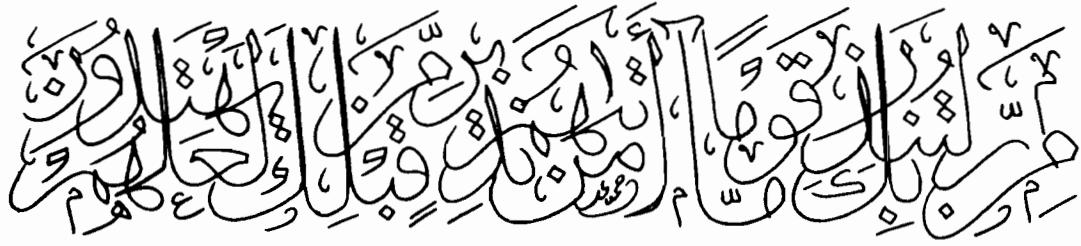 مِن رَّبِّكَ لِتُنذِرَ قَوْمًا مَّا أَتَاهُم مِّن نَّذِيرٍ مِّن قَبْلِكَ لَعَلَّهُمْ يَهْتَدُونَ